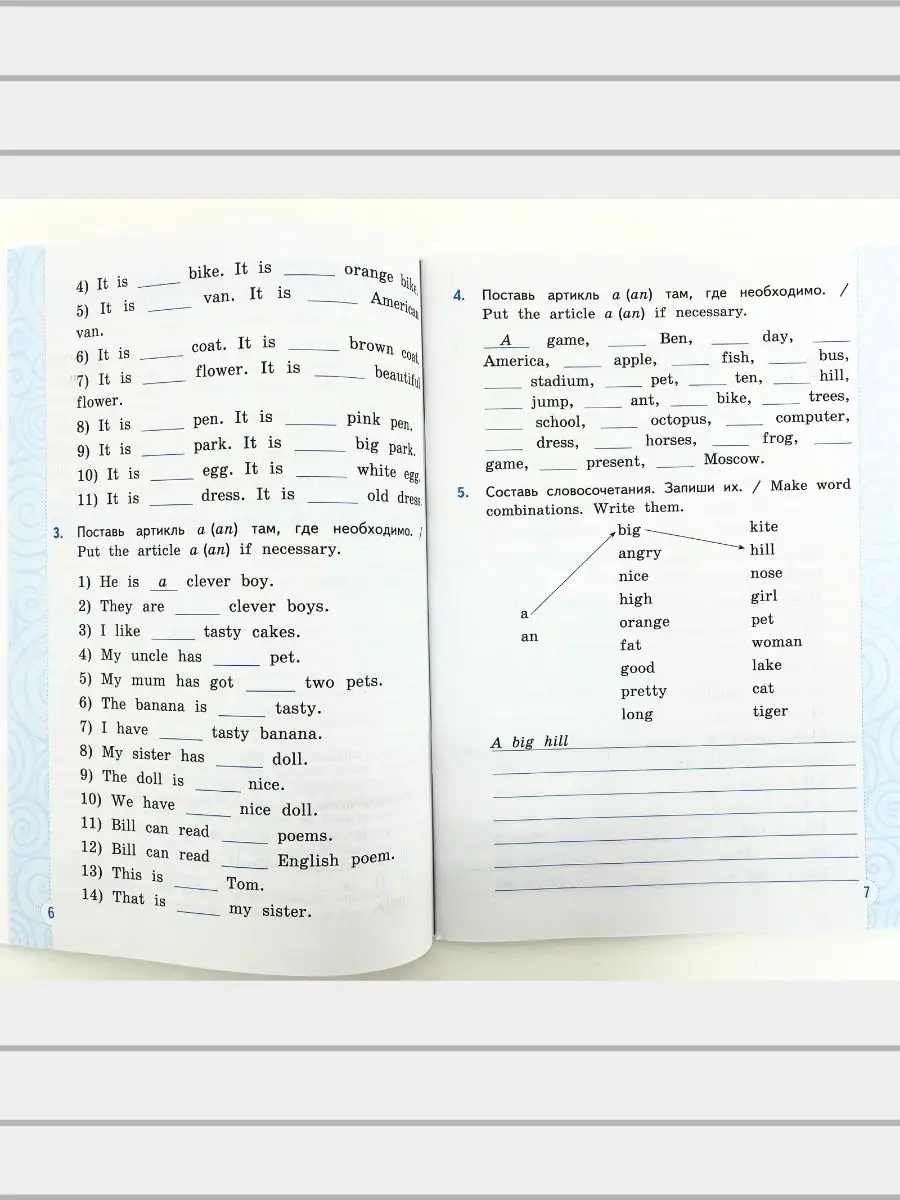 4) It is _____ bike. It is _____ orange bike.
5) It is _____ van. It is _____ American
van.
6) It is _____ coat. It is _____ brown coat.
7) It is _____ flower. It is _____ beautiful
flower.
8) It is _____ pen. It is _____ pink pen.
9) It is _____ park. It is _____ big park.
10) It is _____ egg. It is _____ white egg.
11) It is _____ dress. It is _____ old dress.
3. Поставь артикль a (an) там, где необходимо. /
Put the article a (an) if necessary.
1) He is a clever boy.
2) They are _____ clever boys.
3) I like _____ tasty cakes.
4) My uncle has _____ pet.
5) My mum has got _____ two pets.
6) The banana is _____ tasty.
7) I have _____ tasty banana.
8) My sister has _____ doll.
9) The doll is _____ nice.
10) We have _____ nice doll.
11) Bill can read _____ poems.
12) Bill can read _____ English poem.
13) This is _____ Tom.
14) That is _____ my sister.
6
4. Поставь артикль a (an) там, где необходимо. /
Put the article a (an) if necessary.
A game, _____ Ben, _____ day, _____
America, _____ apple, _____ fish, _____ bus,
_____ stadium, _____ pet, _____ ten, _____ hill,
_____ jump, _____ ant, _____ bike, _____ trees,
_____ school, _____ octopus, _____ computer,
_____ dress, _____ horses, _____ frog, _____
game, _____ present, _____ Moscow.
5. Составь словосочетания. Запиши их. / Make word
combinations. Write them.
big kite
angry hill
nice nose
high girl
a
orange pet
an
fat woman
good lake
pretty cat
long tiger
A big hill
7